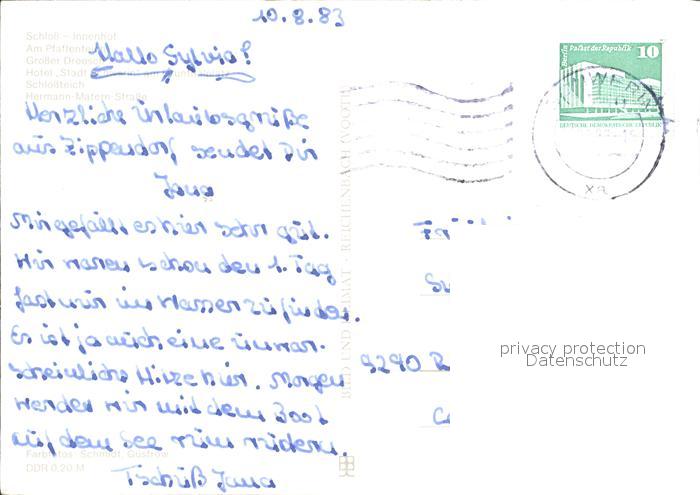 10.8.83
Schloß – Innenhof
Am Pfaffenteich
Großer Dreesch
Hotel „Stadt
Schloßteich
Hermann-Matern-Straße
Hallo Sylvia!
Herzliche Urlaubsgrüße
aus Zippendorf sendet Dir
Jana
Mir gefällt es hier sehr gut.
Wir waren schon den 1. Tag
fast nur im Wasser zu finden.
Es ist ja auch eine unwar-
scheinliche Hitze hier. Morgen
werden wir mit dem Boot
auf dem See rum rudern.
Tschüß Jana
Farbfotos: Schmidt, Güstrow
DDR 0,20 M
BILD UND HEIMAT · REICHENBACH (VOGTL)
Berlin Palast der Republik 10
DEUTSCHE DEMOKRATISCHE REPUBLIK
SCHWERIN
xa
9290 R
privacy protection
Datenschutz